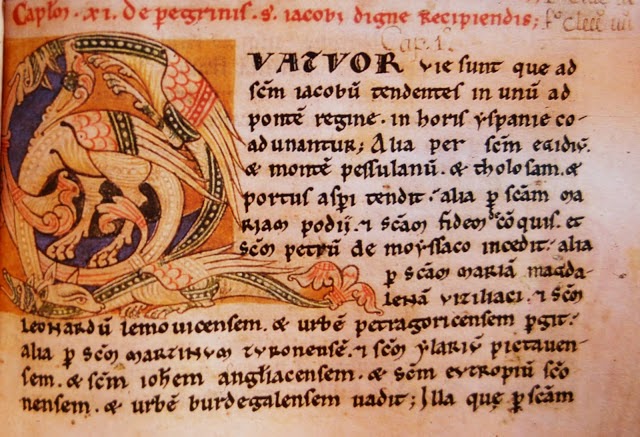 Caplm. xi. de pegrinis. s. iacobi digne recipiendis;
Cap. 1.
QVATVOR vie sunt que ad
scm̄ iacobū tendentes in unū ad
pontē regine. in horis yspanie co-
adunantur; Alia per scm̄ egidiū.
& montē pessulanū. & tholosam. &
portus asp̄i tendit. alia p scām ma
riam podii. ⁊ scām fidem de cōquis. et
scm̄ petrū de moyssaco incedit. alia
p scām mariā magda-
lenā viziliaci. ⁊ scm̄
leonardū lemovicensem. & urbē petragoricensem p̄git.
alia p scm̄ martinum turonensē. ⁊ scm̄ ylariū pictaven-
sem. & scm̄ iohem angliacensem. & scm̄ eutropiū scō
nensem. & urbē burdegalensem vadit; Illa que p scām